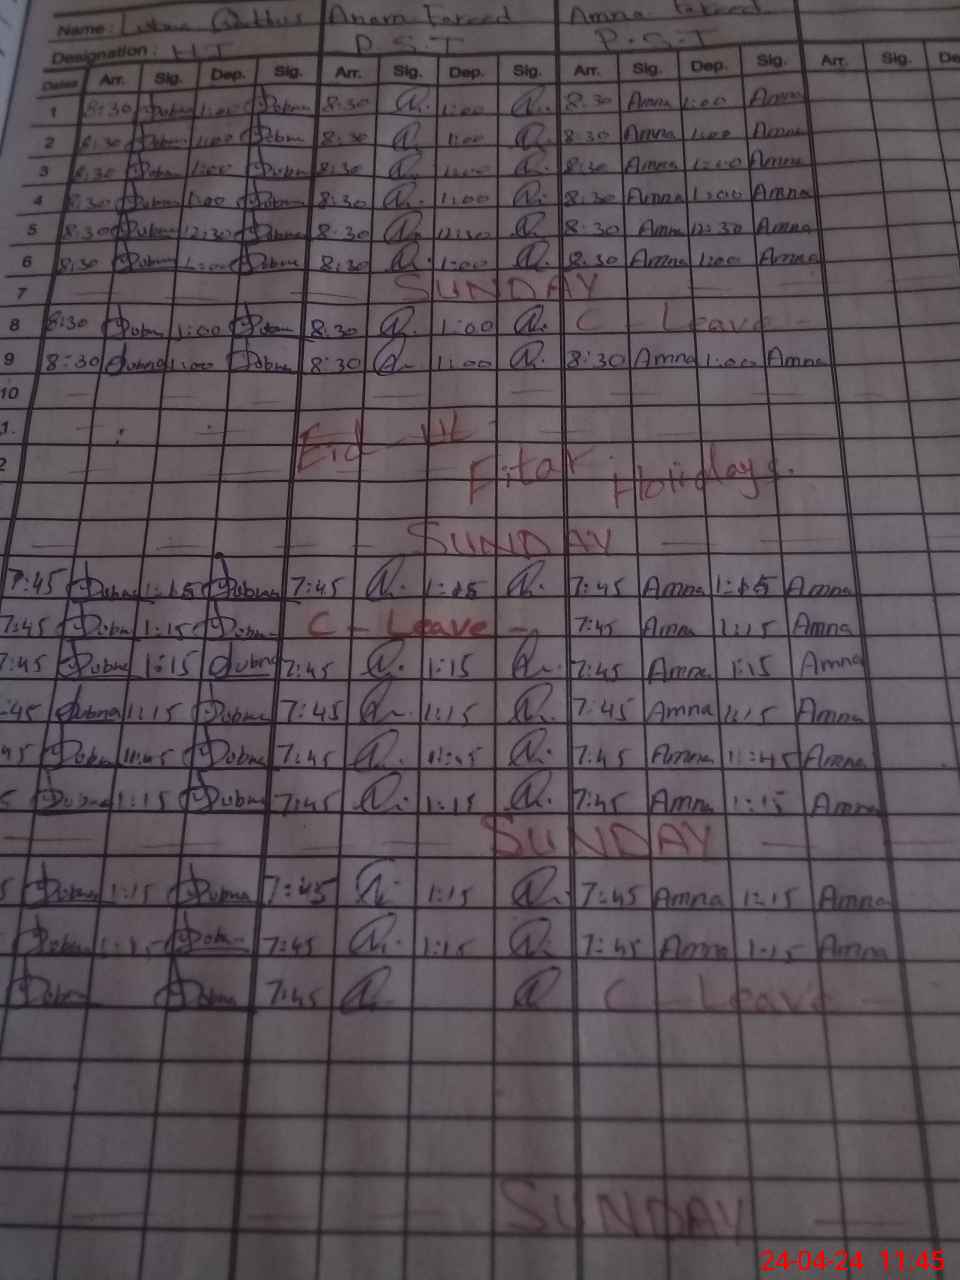 Name: Lubna
Anam Fareed
Amna Fareed
Designation: HT
P.S.T
P.S.T
Dates Arr. Sig. Dep. Sig. Arr. Sig. Dep. Sig. Arr. Sig. Dep. Sig. Arr. Sig. De
1 8:30 Lubna 1:00 Lubna 8:30 A. 1:00 A. 8:30 Amna 1:00 Amna
2 8:30 Lubna 1:00 Lubna 8:30 A. 1:00 A. 8:30 Amna 1:00 Amna
3 8:30 Lubna 1:00 Lubna 8:30 A. 1:00 A. 8:30 Amna 1:00 Amna
4 8:30 Lubna 1:00 Lubna 8:30 A. 1:00 A. 8:30 Amna 1:00 Amna
5 8:30 Lubna 12:30 Lubna 8:30 A. 12:30 A. 8:30 Amna 12:30 Amna
6 8:30 Lubna 1:00 Lubna 8:30 A. 1:00 A. 8:30 Amna 1:00 Amna
7 SUNDAY
8 8:30 Lubna 1:00 Lubna 8:30 A. 1:00 A. C - Leave -
9 8:30 Lubna 1:00 Lubna 8:30 A. 1:00 A. 8:30 Amna 1:00 Amna
10
1.
Eid Ul
2
Fitar Holidays.
SUNDAY
7:45 Lubna 1:15 Lubna 7:45 A. 1:15 A. 7:45 Amna 1:15 Amna
7:45 Lubna 1:15 Lubna C - Leave - 7:45 Amna 1:15 Amna
7:45 Lubna 1:15 Lubna 7:45 A. 1:15 A. 7:45 Amna 1:15 Amna
:45 Lubna 1:15 Lubna 7:45 A. 1:15 A. 7:45 Amna 1:15 Amna
45 Lubna 11:45 Lubna 7:45 A. 11:45 A. 7:45 Amna 11:45 Amna
5 Lubna 1:15 Lubna 7:45 A. 1:15 A. 7:45 Amna 1:15 Amna
SUNDAY
5 Lubna 1:15 Lubna 7:45 A. 1:15 A. 7:45 Amna 1:15 Amna
Lubna 1:15 Lubna 7:45 A. 1:15 A. 7:45 Amna 1:15 Amna
Lubna Lubna 7:45 A. A C - Leave -
SUNDAY
24-04-24 11:45